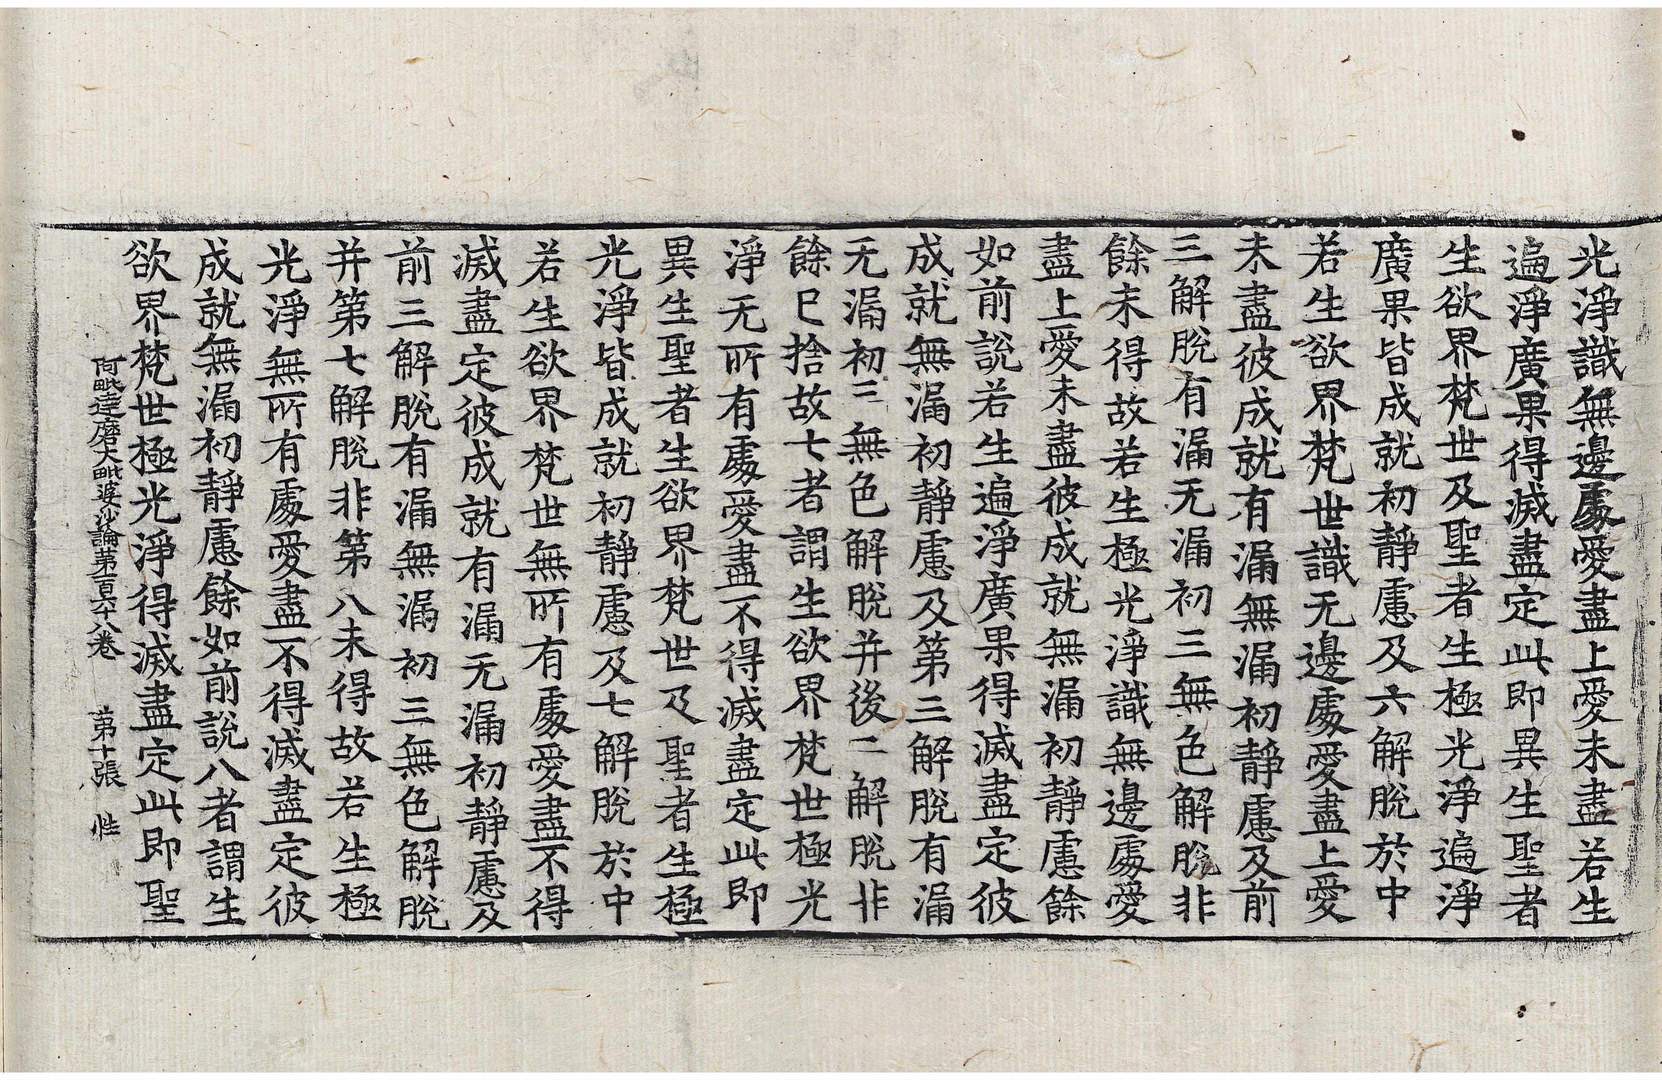 光淨識無邊處愛盡上愛未盡若生
遍淨廣果得滅盡定此即異生聖者
生欲界梵世及聖者生極光淨遍淨
廣果皆成就初靜慮及六解脫於中
若生欲界梵世識无邊處愛盡上愛
未盡彼成就有漏無漏初靜慮及前
三解脫有漏无漏初三無色解脫非
餘未得故若生極光淨識無邊處愛
盡上愛未盡彼成就無漏初靜慮餘
如前說若生遍淨廣果得滅盡定彼
成就無漏初靜慮及第三解脫有漏
无漏初三無色解脫并後二解脫非
餘已捨故七者謂生欲界梵世極光
淨无所有處愛盡不得滅盡定此即
異生聖者生欲界梵世及聖者生極
光淨皆成就初靜慮及七解脫於中
若生欲界梵世無所有處愛盡不得
滅盡定彼成就有漏无漏初靜慮及
前三解脫有漏無漏初三無色解脫
并第七解脫非第八未得故若生極
光淨無所有處愛盡不得滅盡定彼
成就無漏初靜慮餘如前說八者謂生
欲界梵世極光淨得滅盡定此即聖
阿毗達磨大毗婆沙論第一百六十八卷 第十張 性